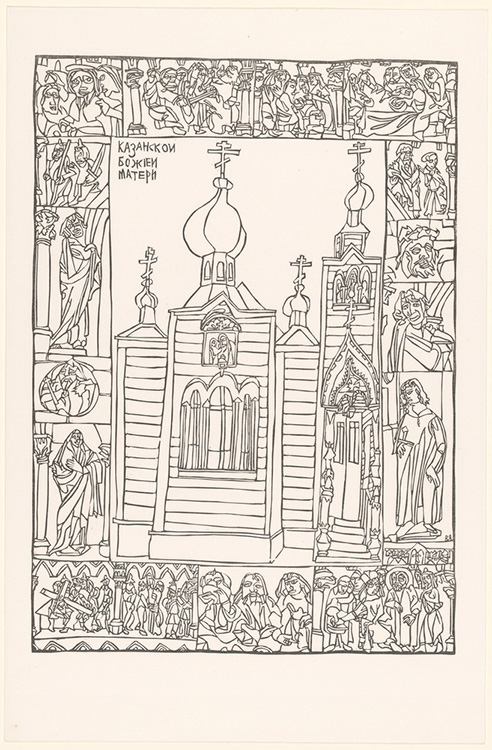 КАЗАНСКОИ
БОЖІЕИ
МАТЕРИ